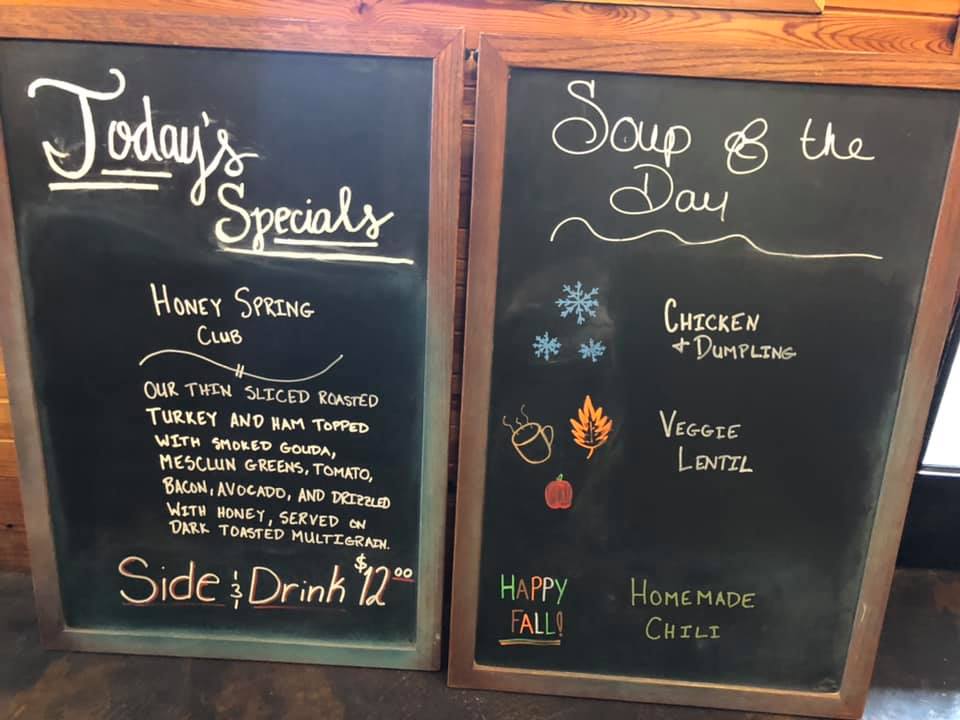 Today's
Specials
HONEY SPRING
CLUB
OUR THIN SLICED ROASTED
TURKEY AND HAM TOPPED
WITH SMOKED GOUDA,
MESCLUN GREENS, TOMATO,
BACON, AVOCADO, AND DRIZZLED
WITH HONEY, SERVED ON
DARK TOASTED MULTIGRAIN.
Side & Drink $12.00
Soup of the
Day
CHICKEN
& DUMPLING
VEGGIE
LENTIL
HAPPY
FALL!
HOMEMADE
CHILI